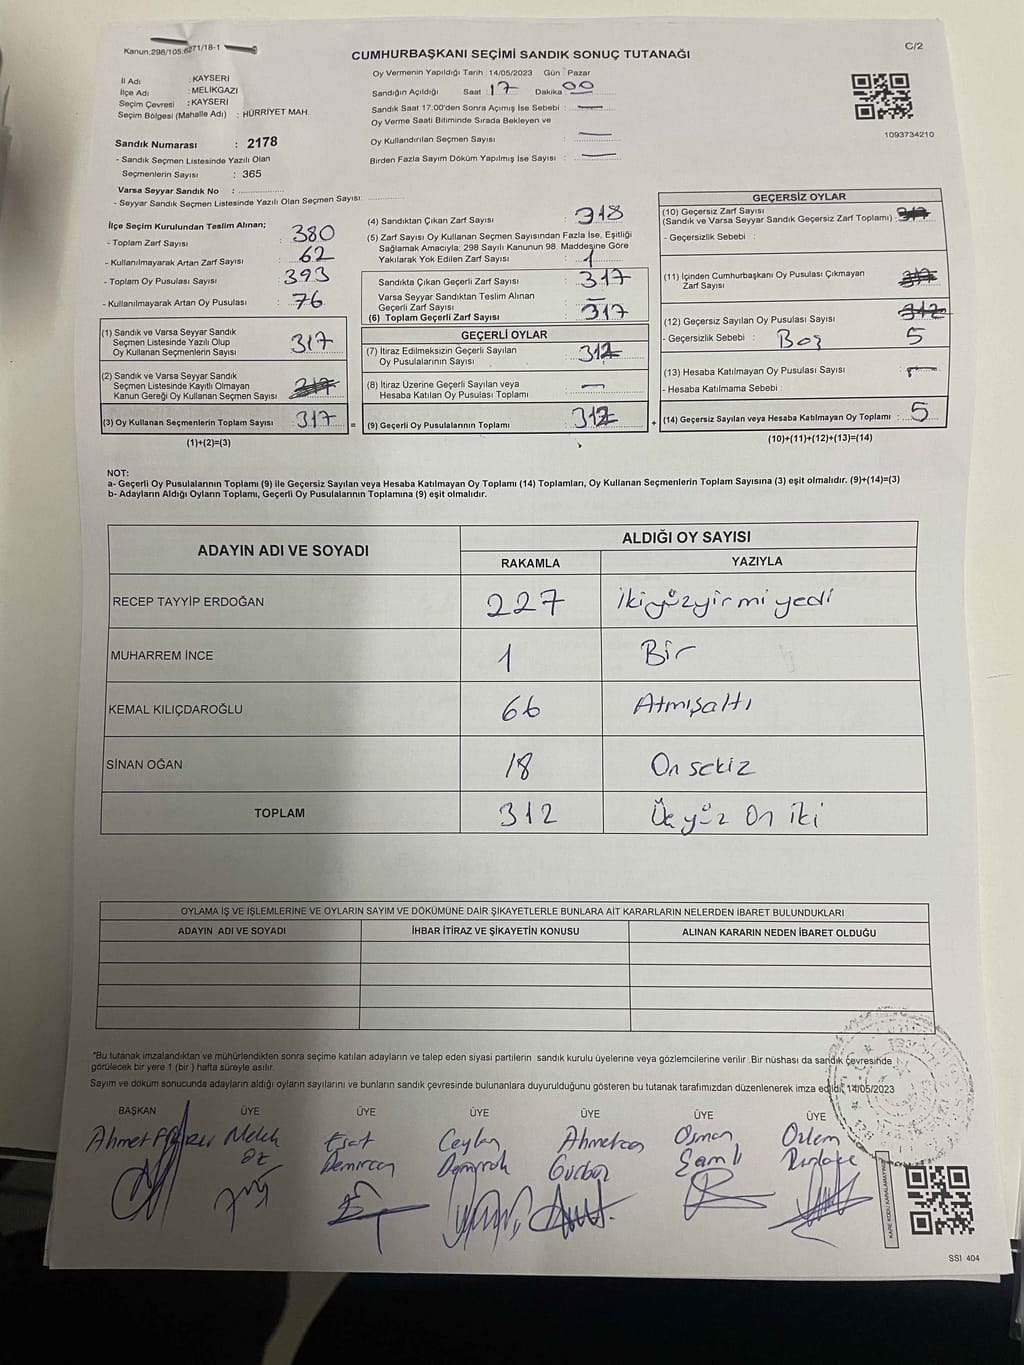 Kanun:298/105,6271/18-1
C/2
CUMHURBAŞKANI SEÇİMİ SANDIK SONUÇ TUTANAĞI
İl Adı : KAYSERİ
İlçe Adı : MELİKGAZİ
Seçim Çevresi : KAYSERİ
Seçim Bölgesi (Mahalle Adı) : HÜRRİYET MAH.
Sandık Numarası : 2178
- Sandık Seçmen Listesinde Yazılı Olan
Seçmenlerin Sayısı : 365
Varsa Seyyar Sandık No :
- Seyyar Sandık Seçmen Listesinde Yazılı Olan Seçmen Sayısı:
Oy Vermenin Yapıldığı Tarih :14/05/2023 Gün : Pazar
Sandığın Açıldığı Saat : 17 Dakika : 00
Sandık Saat 17:00'den Sonra Açımış İse Sebebi : —
Oy Verme Saati Bitiminde Sırada Bekleyen ve
Oy Kullandırılan Seçmen Sayısı : —
Birden Fazla Sayım Döküm Yapılmış İse Sayısı : —
1093734210
İlçe Seçim Kurulundan Teslim Alınan;
- Toplam Zarf Sayısı : 380
- Kullanılmayarak Artan Zarf Sayısı : 62
- Toplam Oy Pusulası Sayısı : 393
- Kullanılmayarak Artan Oy Pusulası : 76
(1) Sandık ve Varsa Seyyar Sandık
Seçmen Listesinde Yazılı Olup
Oy Kullanan Seçmenlerin Sayısı : 317
(2) Sandık ve Varsa Seyyar Sandık
Seçmen Listesinde Kayıtlı Olmayan
Kanun Gereği Oy Kullanan Seçmen Sayısı :
(3) Oy Kullanan Seçmenlerin Toplam Sayısı : 317
(1)+(2)=(3)
=
(4) Sandıktan Çıkan Zarf Sayısı : 318
(5) Zarf Sayısı Oy Kullanan Seçmen Sayısından Fazla İse, Eşitliği
Sağlamak Amacıyla; 298 Sayılı Kanunun 98. Maddesine Göre
Yakılarak Yok Edilen Zarf Sayısı : 1
Sandıkta Çıkan Geçerli Zarf Sayısı : 317
Varsa Seyyar Sandıktan Teslim Alınan
Geçerli Zarf Sayısı : —
(6) Toplam Geçerli Zarf Sayısı : 317
GEÇERLİ OYLAR
(7) İtiraz Edilmeksizin Geçerli Sayılan
Oy Pusulalarının Sayısı : 312
(8) İtiraz Üzerine Geçerli Sayılan veya
Hesaba Katılan Oy Pusulası Toplamı : —
(9) Geçerli Oy Pusulalarının Toplamı : 312
+
GEÇERSİZ OYLAR
(10) Geçersiz Zarf Sayısı
(Sandık ve Varsa Seyyar Sandık Geçersiz Zarf Toplamı) :
- Geçersizlik Sebebi :
(11) İçinden Cumhurbaşkanı Oy Pusulası Çıkmayan
Zarf Sayısı :
(12) Geçersiz Sayılan Oy Pusulası Sayısı : 312
- Geçersizlik Sebebi : Boş 5
(13) Hesaba Katılmayan Oy Pusulası Sayısı : —
- Hesaba Katılmama Sebebi :
(14) Geçersiz Sayılan veya Hesaba Katılmayan Oy Toplamı : 5
(10)+(11)+(12)+(13)=(14)
NOT:
a- Geçerli Oy Pusulalarının Toplamı (9) ile Geçersiz Sayılan veya Hesaba Katılmayan Oy Toplamı (14) Toplamları, Oy Kullanan Seçmenlerin Toplam Sayısına (3) eşit olmalıdır. (9)+(14)=(3)
b- Adayların Aldığı Oyların Toplamı, Geçerli Oy Pusulalarının Toplamına (9) eşit olmalıdır.
ADAYIN ADI VE SOYADI
ALDIĞI OY SAYISI
RAKAMLA YAZIYLA
RECEP TAYYİP ERDOĞAN 227 ikiyüzyirmiyedi
MUHARREM İNCE 1 Bir
KEMAL KILIÇDAROĞLU 66 Atmışaltı
SİNAN OĞAN 18 On sekiz
TOPLAM 312 Üçyüz On iki
OYLAMA İŞ VE İŞLEMLERİNE VE OYLARIN SAYIM VE DÖKÜMÜNE DAİR ŞİKAYETLERLE BUNLARA AİT KARARLARIN NELERDEN İBARET BULUNDUKLARI
ADAYIN ADI VE SOYADI İHBAR İTİRAZ VE ŞİKAYETİN KONUSU ALINAN KARARIN NEDEN İBARET OLDUĞU
*Bu tutanak imzalandıktan ve mühürlendikten sonra seçime katılan adayların ve talep eden siyasi partilerin sandık kurulu üyelerine veya gözlemcilerine verilir .Bir nüshası da sandık çevresinde
görülecek bir yere 1 (bir ) hafta süreyle asılır.
Sayım ve döküm sonucunda adayların aldığı oyların sayılarını ve bunların sandık çevresinde bulunanlara duyurulduğunu gösteren bu tutanak tarafımızdan düzenlenerek imza edildi. 14/05/2023
BAŞKAN ÜYE ÜYE ÜYE ÜYE ÜYE ÜYE
Ahmet Melek Esat Ceylan Ahmetcan Osman Özlem
Öz Demircan Demirok Gürbüz Şamlı
KARE KODU KARALAMAYINIZ
SSI 404